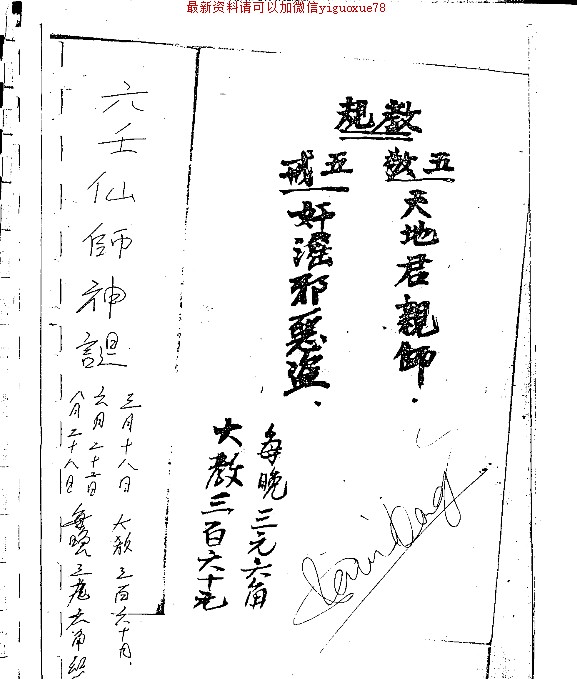 最新资料请可以加微信yiguoxue78
教規
五教
天地君親師.
五戒
奸淫邪惡盜.
每晚三元六角
大教三百六十元
六壬仙師神誕
三月十八日
六月二十二日
八月二十八日
大教三百六十
每晚三元六角